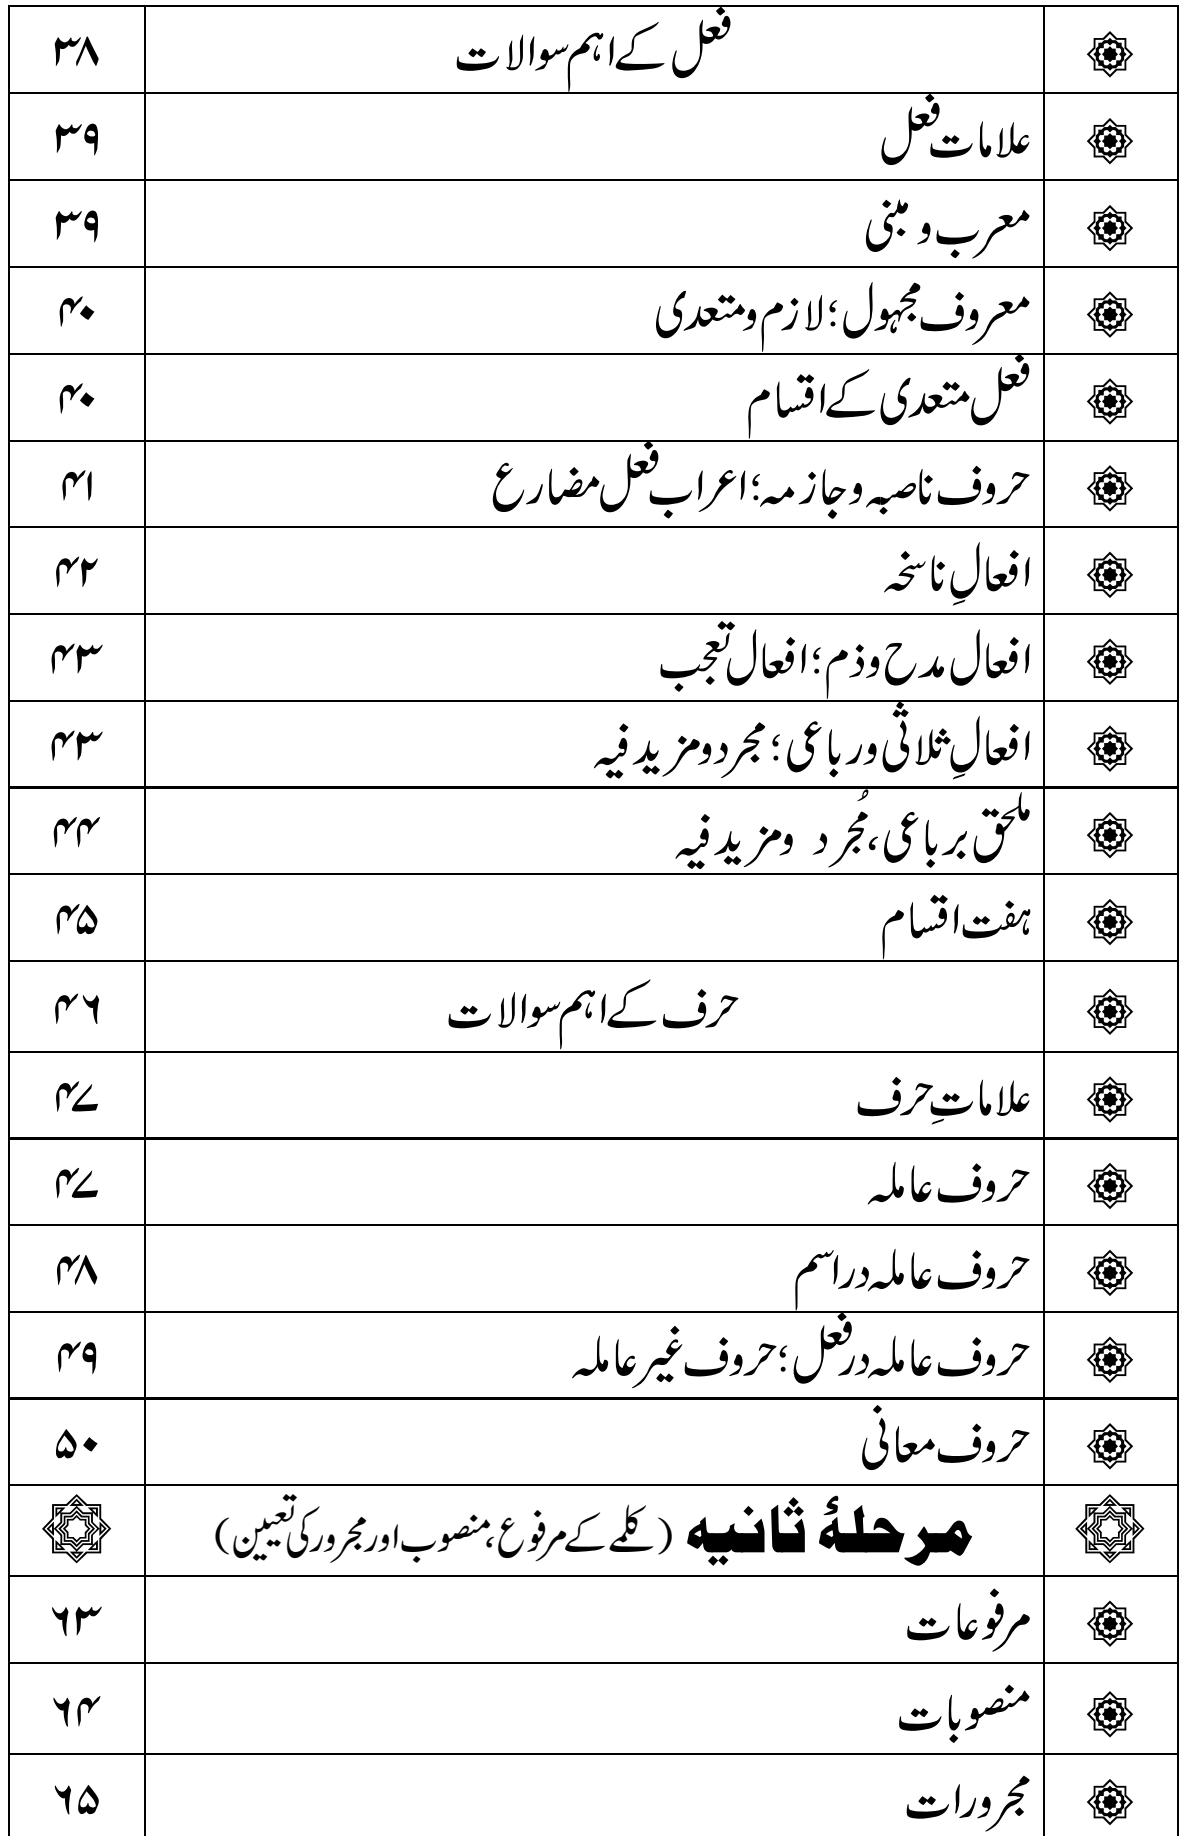 فعل کے اہم سوالات ۳۸
علامات فعل ۳۹
معرب و مبنی ۳۹
معروف مجہول؛ لازم و متعدی ۴۰
فعل متعدی کے اقسام ۴۰
حروف ناصبہ و جازمہ؛ اعراب فعل مضارع ۴۱
افعالِ ناسخہ ۴۲
افعال مدح و ذم؛ افعال تعجب ۴۳
افعالِ ثلاثی و رباعی؛ مجرد و مزید فیہ ۴۳
ملحق بر باعی، مُجرد و مزید فیہ ۴۴
ہفت اقسام ۴۵
حرف کے اہم سوالات ۴۶
علاماتِ حرف ۴۷
حروف عاملہ ۴۷
حروف عاملہ در اسم ۴۸
حروف عاملہ در فعل؛ حروف غیر عاملہ ۴۹
حروف معانی ۵۰
مرحلۂ ثانیہ (کلمے کے مرفوع، منصوب اور مجرور کی تعیین)
مرفوعات ۶۳
منصوبات ۶۴
مجرورات ۶۵